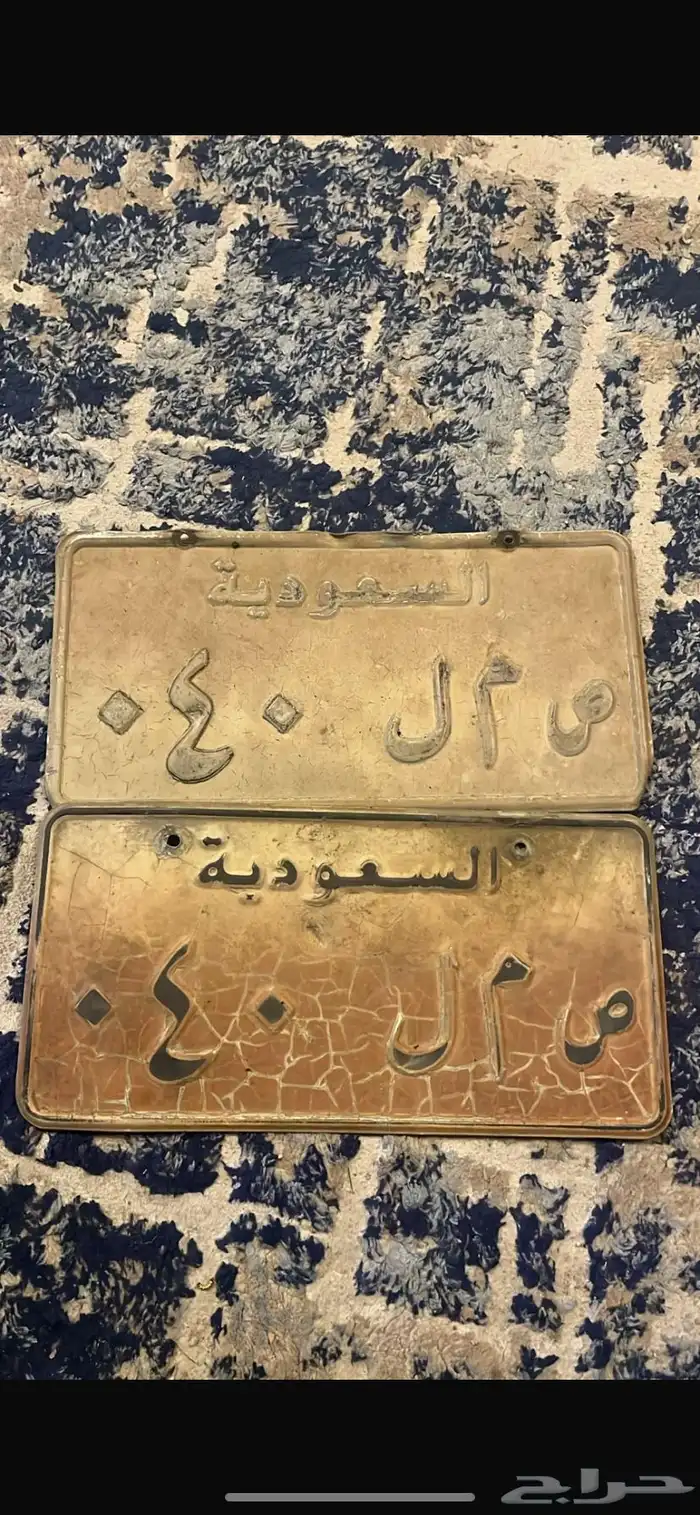 السعودية
ص م ل ٠٤٠
السعودية
ص م ل ٠٤٠
حراج